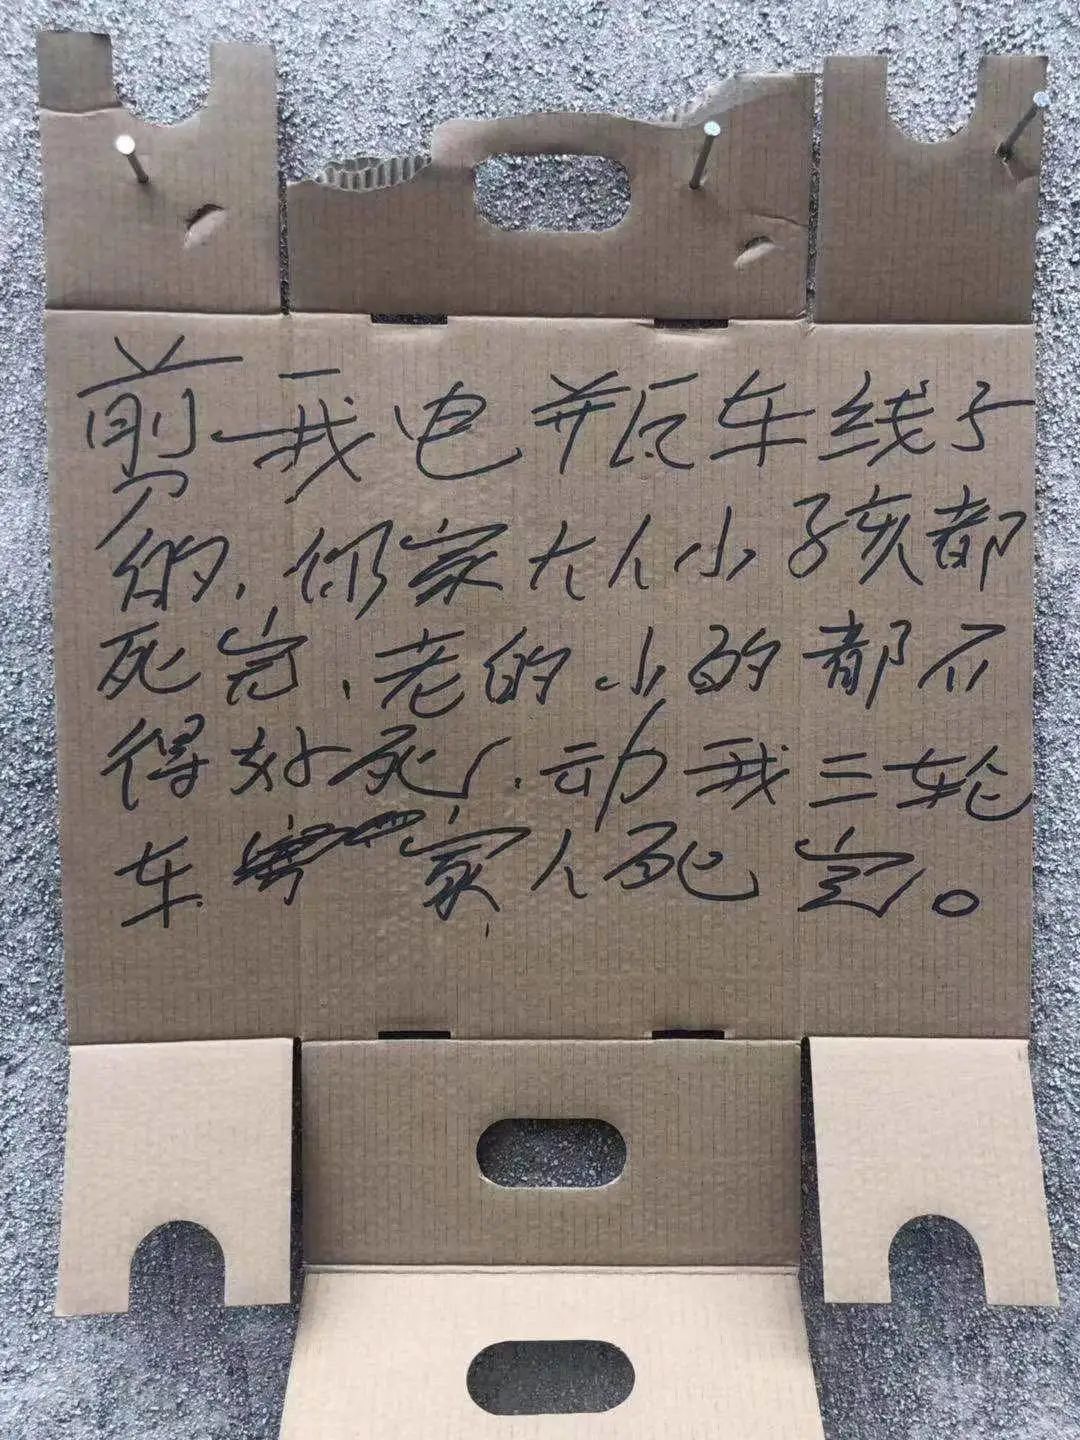 剪我电并瓦车线子
的,你家大人小孩都
死完,老的小的都不
得好死,动我三轮
车 家人死完。